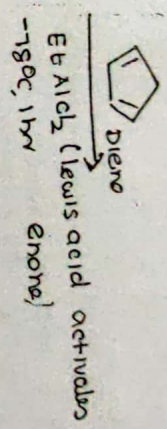 Diene
EtAlCl₂ (lewis acid activates
enone)
-78°C, 1 hr